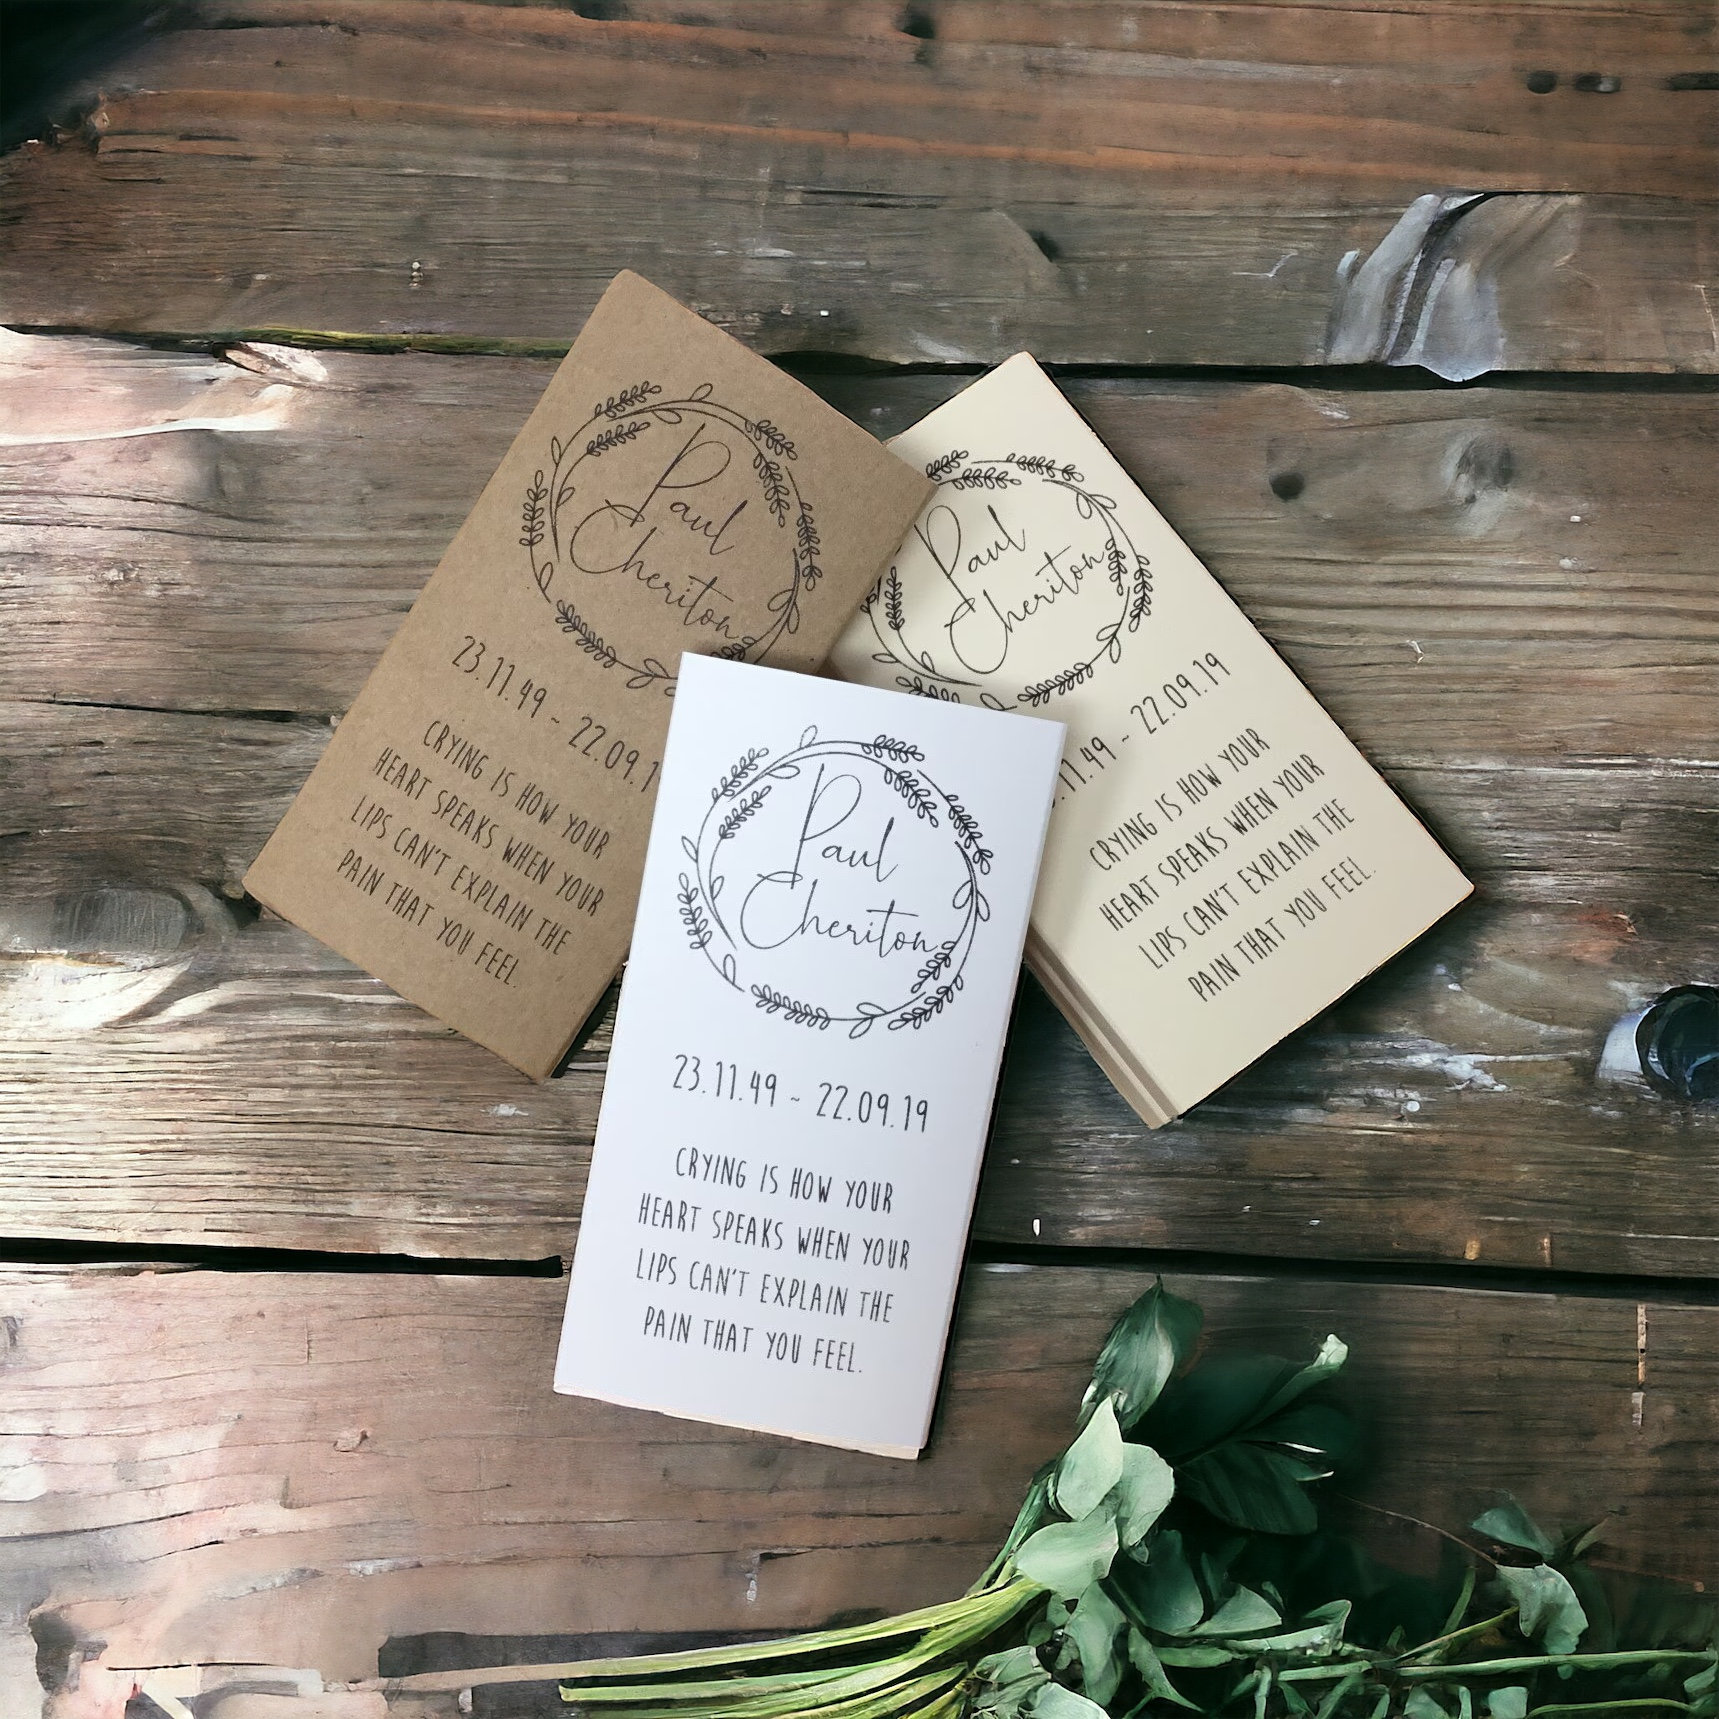 Paul
Cheriton
23.11.49 ~ 22.09.1
CRYING IS HOW YOUR
HEART SPEAKS WHEN YOUR
LIPS CAN'T EXPLAIN THE
PAIN THAT YOU FEEL.
Paul
Cheriton
.11.49 ~ 22.09.19
CRYING IS HOW YOUR
HEART SPEAKS WHEN YOUR
LIPS CAN'T EXPLAIN THE
PAIN THAT YOU FEEL.
Paul
Cheriton
23.11.49 ~ 22.09.19
CRYING IS HOW YOUR
HEART SPEAKS WHEN YOUR
LIPS CAN'T EXPLAIN THE
PAIN THAT YOU FEEL.